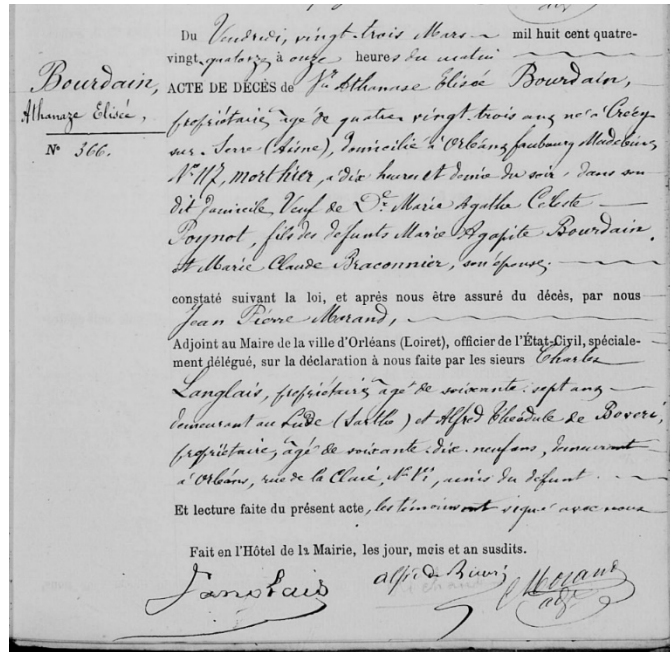 Du Vendredi, vingt-trois Mars mil huit cent quatre-
vingt-quatorze à onze heures du matin
Bourdain,
Athanaze Elisée,
N° 366.
ACTE DE DÉCÈS de Sr Athanase Elisée Bourdain,
propriétaire, âgé de quatre-vingt-trois ans, né à Crécy
sur-Serre (Aisne), domicilié à Orléans, faubourg Madeleine,
N° 117, mort hier, à dix heures et demie du soir, dans son
dit domicile, Veuf de De Marie Agathe Celeste
Poynot, fils des défunts Marie Agapite Bourdain
et Marie Claude Braconnier, son épouse;
constaté suivant la loi, et après nous être assuré du décès, par nous
Jean Pierre Morand,
Adjoint au Maire de la ville d'Orléans (Loiret), officier de l'État-Civil, spéciale-
ment délégué, sur la déclaration à nous faite par les sieurs Charles
Langlais, propriétaire, âgé de soixante-sept ans,
demeurant au Lude (Sarthe) et Alfred Théodule de
propriétaire, âgé de soixante-dix-neuf ans, demeurant
à Orléans, rue de la N° amis du défunt.
Et lecture faite du présent acte, les témoins ont signé avec nous
Fait en l'Hôtel de la Mairie, les jour, mois et an susdits.
Langlais
Morand
adjt